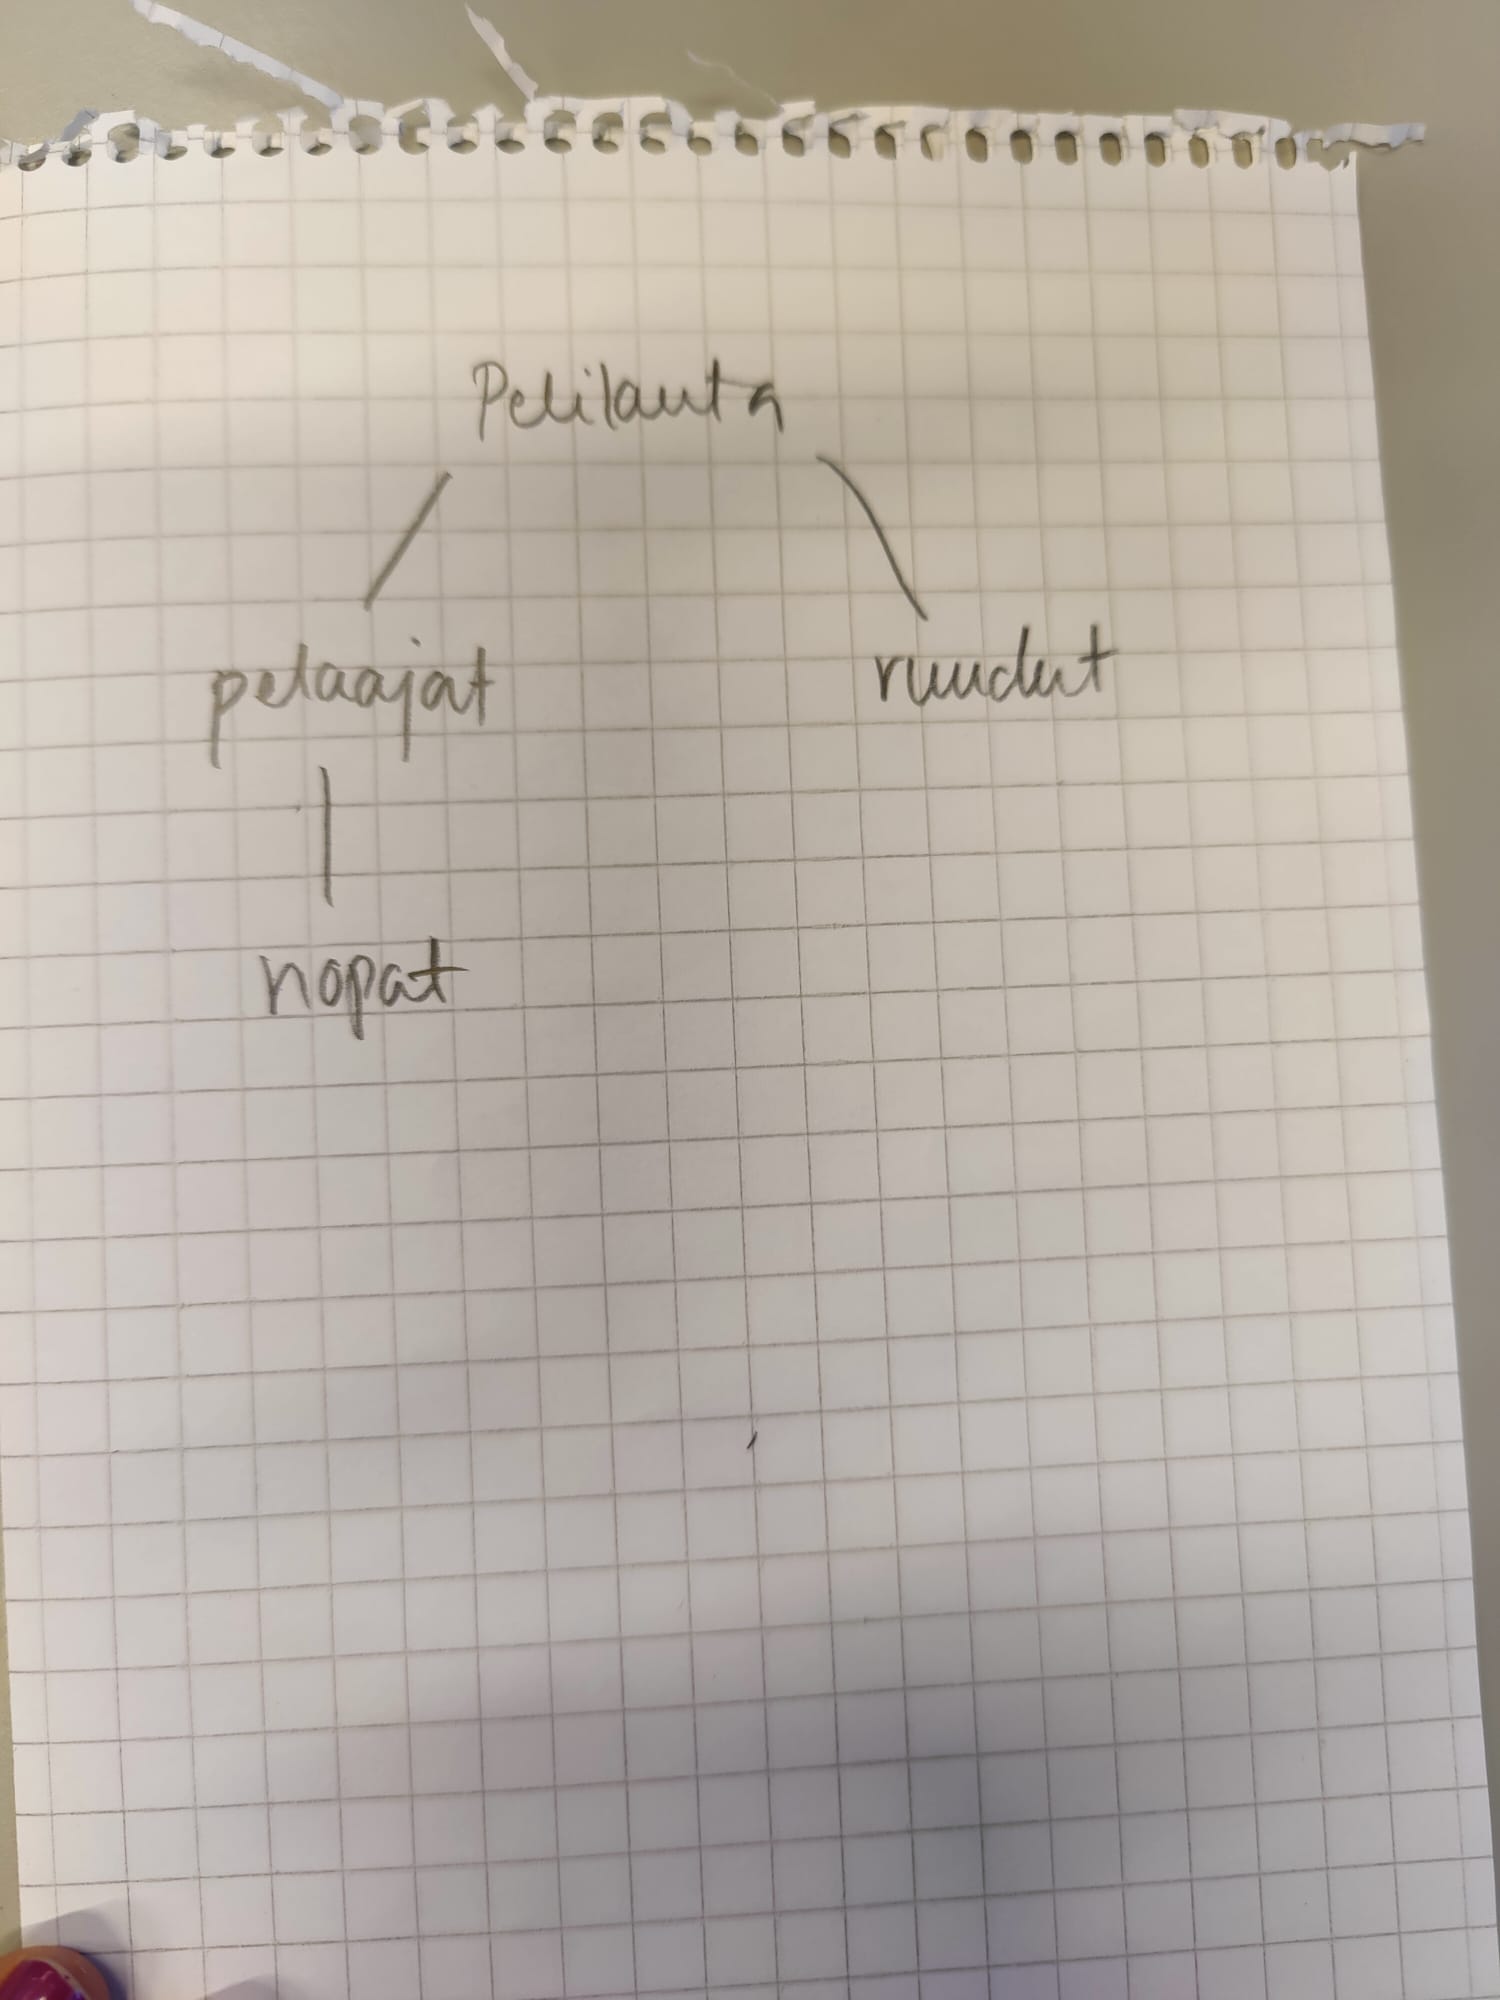 Pelilauta
pelaajat ruudut
nopat